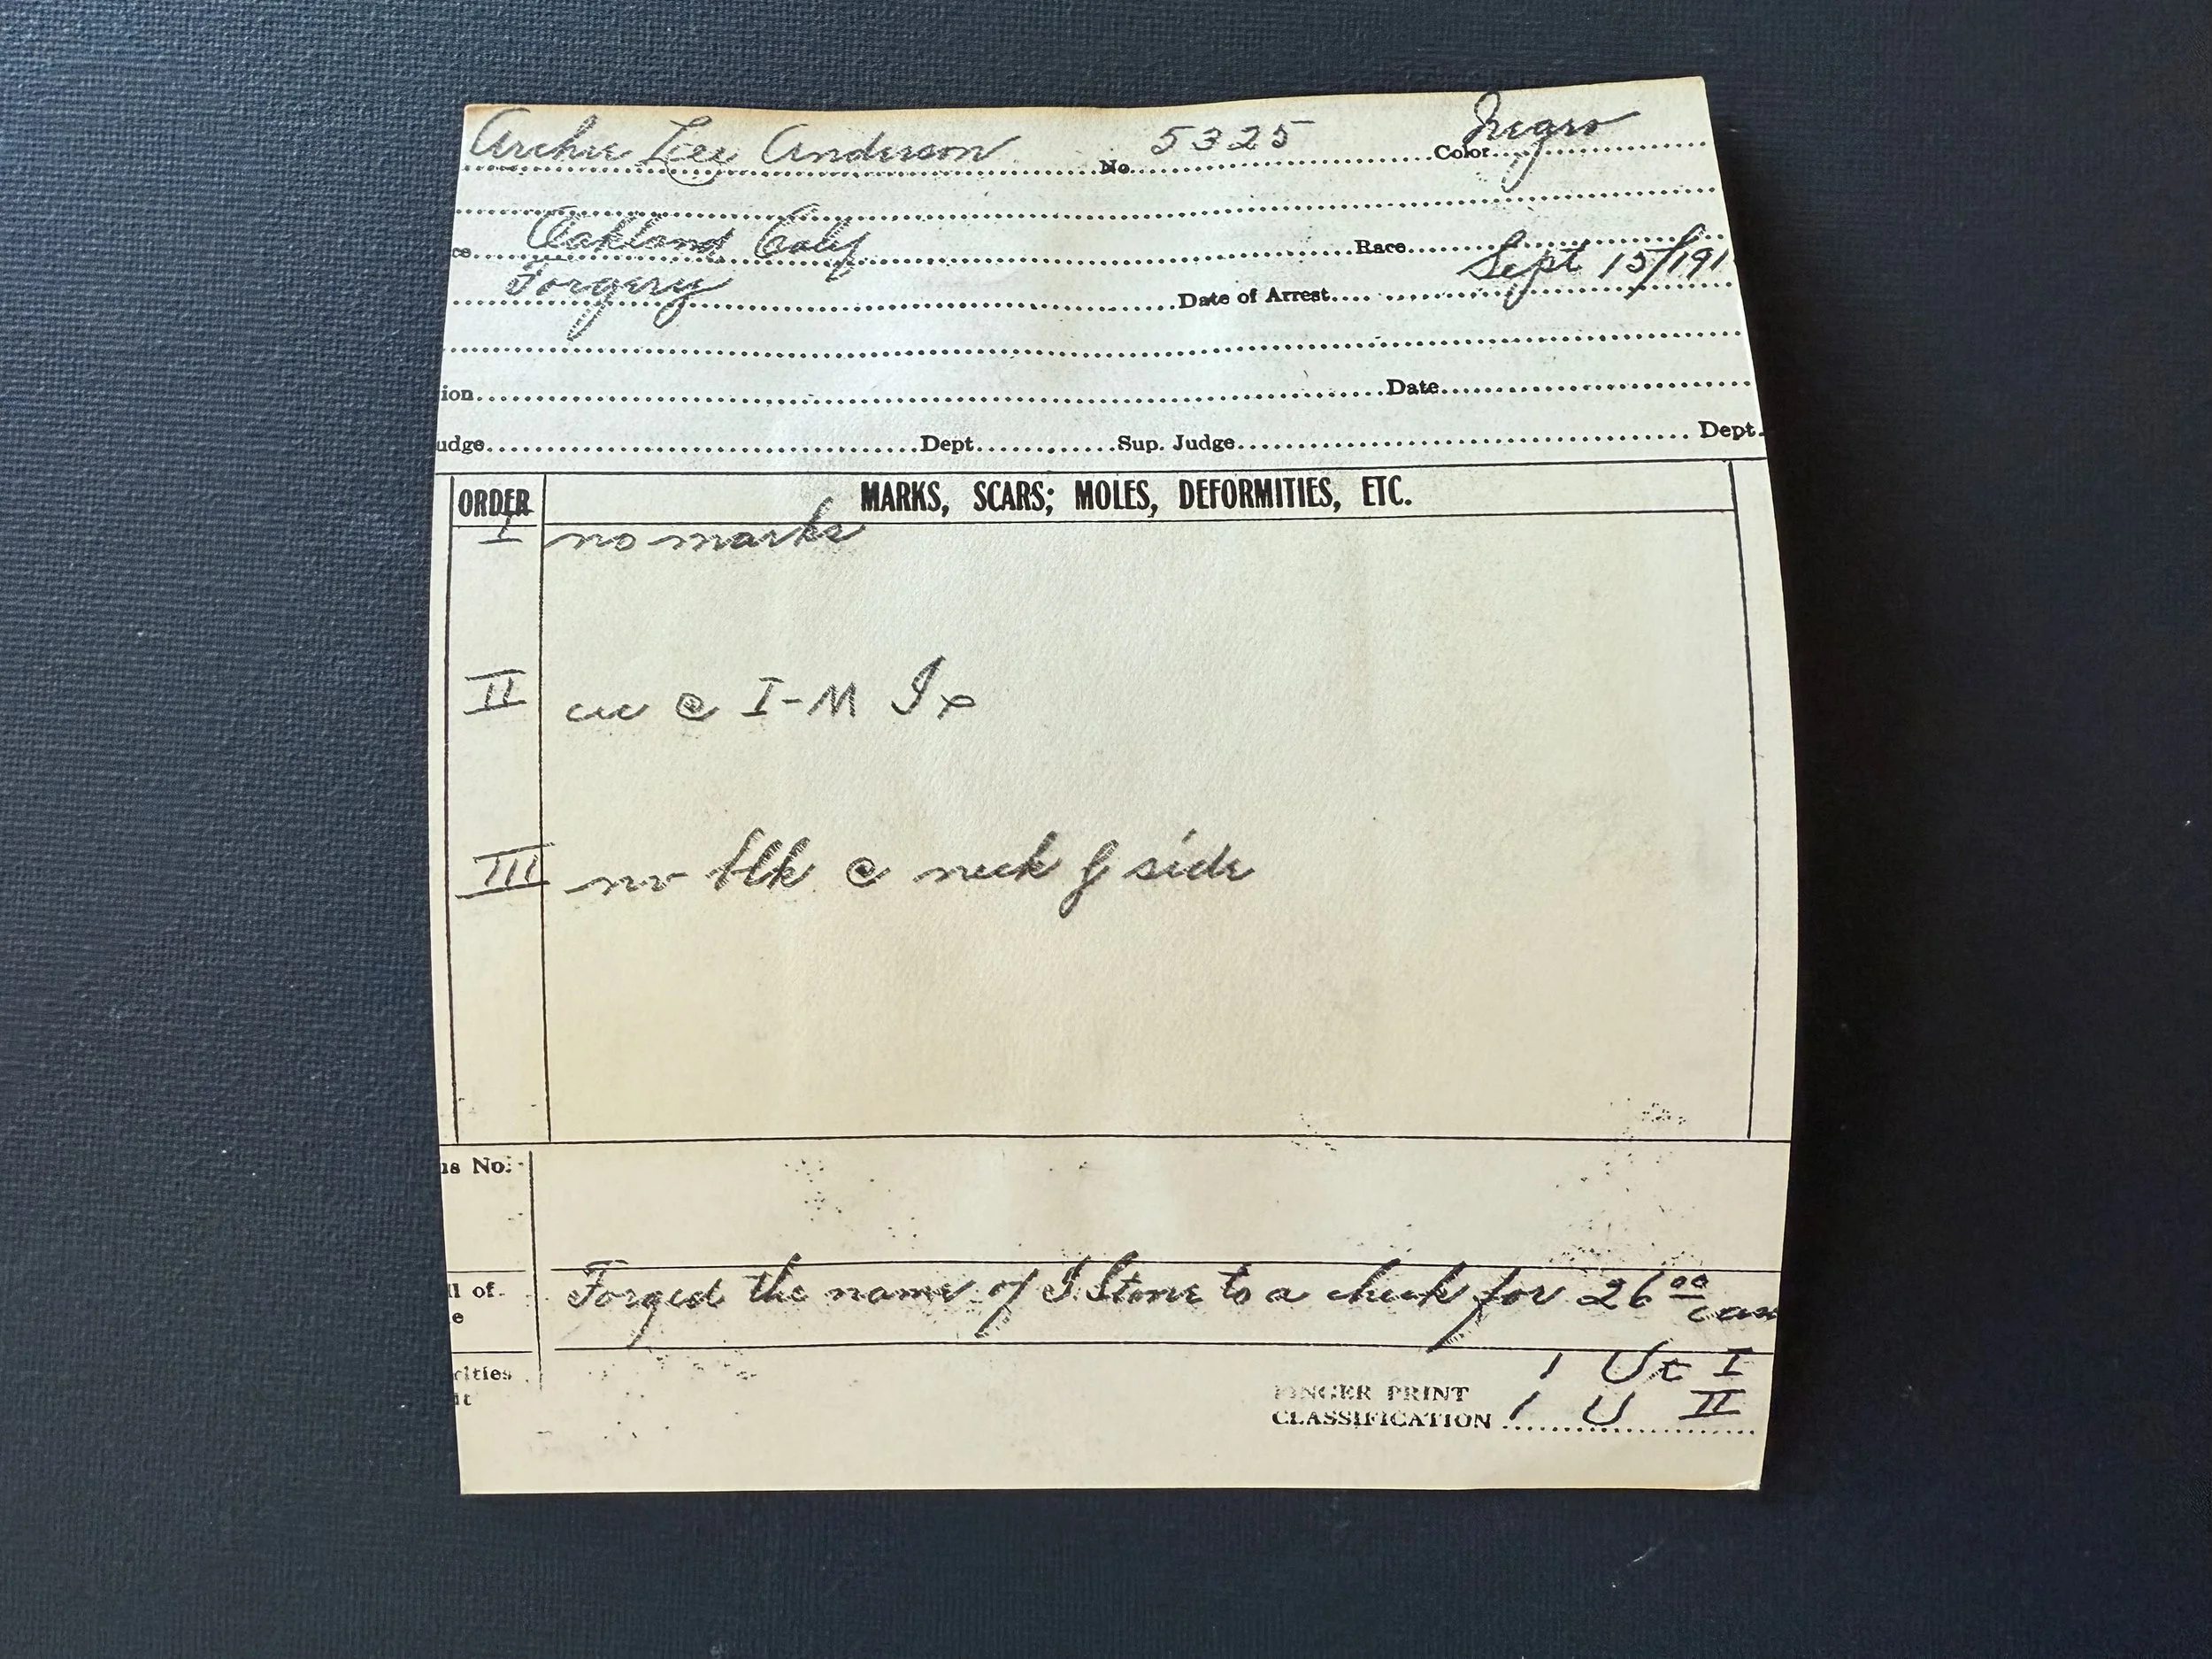 Archie Lee Anderson No. 5325 Color Negro
ce. Oakland Calif Race
Forgery Date of Arrest Sept 15/191
ion Date
udge Dept. Sup. Judge Dept.
ORDER MARKS, SCARS; MOLES, DEFORMITIES, ETC.
I no marks
II cic @ I-M
III nv blk @ neck f side
us No.
Forged the name of I Stone to a check for 26 00 cas
ll of
e
1 Ut I
rities
it
FINGER PRINT
CLASSIFICATION 1 U II